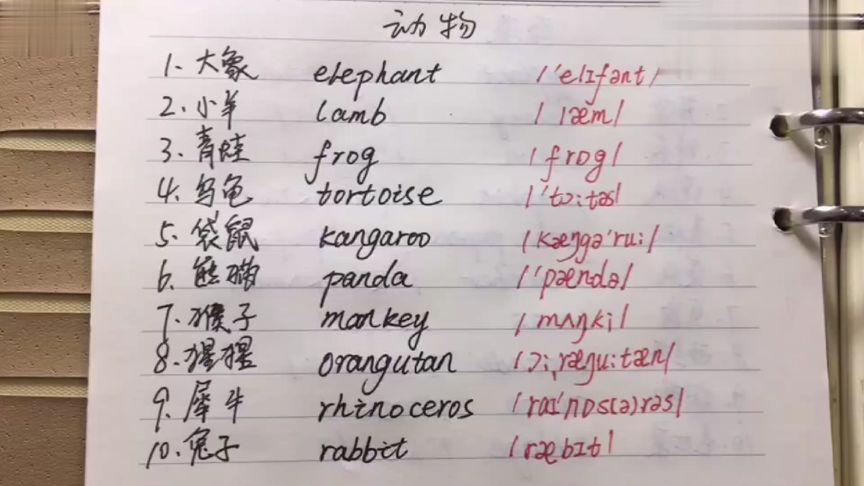 动物
1. 大象 elephant /'elɪfənt/
2. 小羊 lamb /læm/
3. 青蛙 frog /frɒg/
4. 乌龟 tortoise /'tɔ:təs/
5. 袋鼠 kangaroo /kæŋgə'ru:/
6. 熊猫 panda /'pændə/
7. 猴子 mankey /mʌŋki/
8. 猩猩 orangutan /ɔ:ˌræŋu:tæn/
9. 犀牛 rhinoceros /raɪ'nɒs(ə)rəs/
10. 兔子 rabbit /ræbɪt/